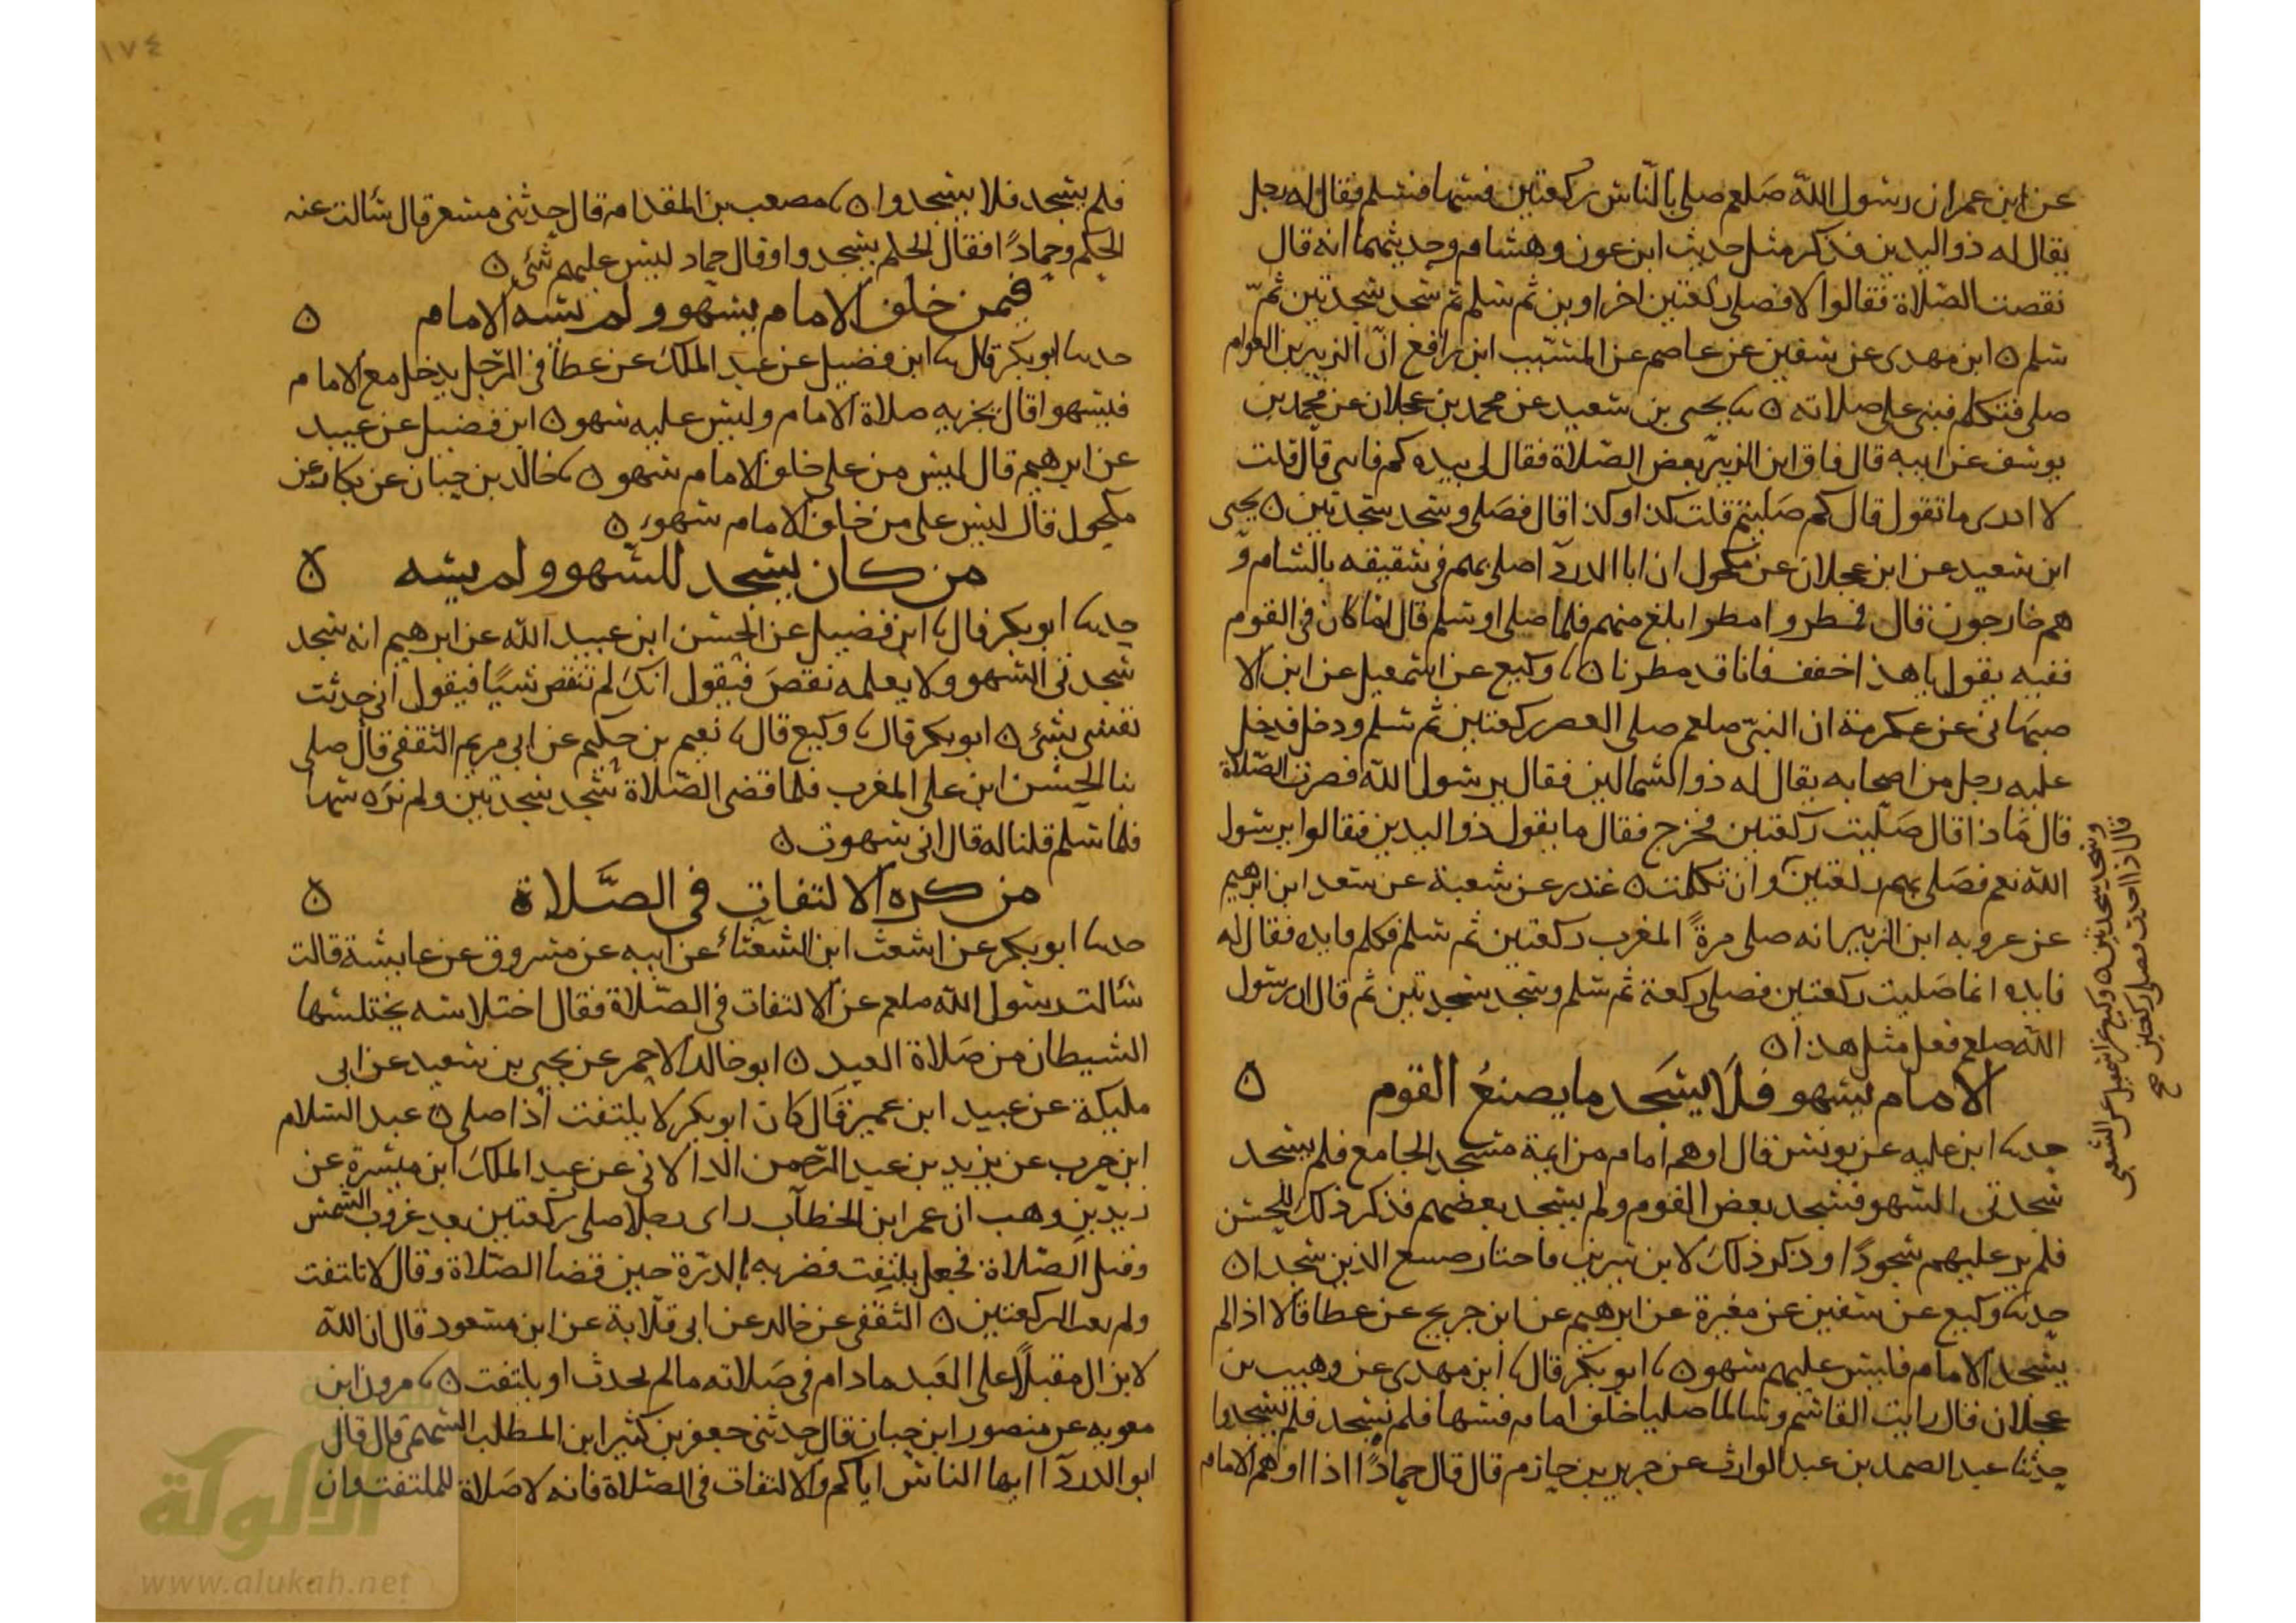 عن ابن عمر ان رسول الله صلعم صلى بالناس ركعتين فسها فسلم فقال له رجل
يقال له ذو اليدين فذكر مثل حديث ابن عون وهشام وحديثهما انه قال
نقصت الصلاة فقالوا لا فصلى ركعتين اخراوين ثم سلم ثم سجد سجدتين ثم
سلم ٥ ابن مهدى عن سفين عن عاصم عن المسيب ابن رافع ان الزبير بن العوام
صلى فتكلم فبنى على صلاته ٥ ثنا يحيى بن سعيد عن محمد بن عجلان عن محمد بن
يوسف عن ابيه قال فاق ابن الزبير بعض الصلاة فقال لى بيده كم فاتنى قال قلت
لا ادرى ما تقول قال كم صليتم قلت كذا وكذا قال فصلى وسجد سجدتين ٥ يحيى
ابن سعيد عن ابن عجلان عن مكحول ان ابا الدردآ صلى بهم فى سقيفه بالشام و
هم خارجون قال فمطروا مطرا بلغ منهم فلما صلى وسلم قال اما كان فى القوم
فقيه يقول يا هذا خفف فانا قد مطرنا ٥ ثنا وكيع عن اسمعيل عن ابن الا
صبهانى عن عكرمة ان النبى صلعم صلى العصر ركعتين ثم سلم ودخل فدخل
عليه رجل من اصحابه يقال له ذو الشمالين فقال يرسول الله قصرت الصلاة
قال ماذا قال صليت ركعتين فخرج فقال ما يقول ذو اليدين فقالوا يرسول
الله نعم فصلى بهم ركعتين وان تكلمت ٥ غندر عن شعبة عن سعد ابن ابرهيم
عن عروه ابن الزبير انه صلى مرة المغرب ركعتين ثم سلم فكلم قايده فقال له
قايده انما صليت ركعتين فصلى ركعة ثم سلم وسجد سجدتين ثم قال ان رسول
الله صلعم فعل مثل هذا ٥
الامام يسهو فلا يسجد ما يصنع القوم ٥
حدثنا ابن عليه عن يونس قال اوهم امام من ايمة مسجد الجامع فلم يسجد
سجدتى السهو فسجد بعض القوم ولم يسجد بعضهم فذكر ذلك للحسن
فلم ير عليهم سجودا وذكر ذلك لابن سيرين فاختار صنيع الذين سجدوا ٥
حدثنا وكيع عن سفين عن مغيرة عن ابرهيم عن ابن جريج عن عطا قالا اذا لم
يسجد الامام فليس عليهم سهو ٥ ثنا ابو بكر قال ثنا ابن مهدى عن وهيب بن
عجلان قال رايت القاسم وسالما صليا خلف امام فسها فلم يسجد فلم يسجدوا
حدثنا عبد الصمد بن عبد الوارث عن جرير بن حازم قال قال حمادا اذا اوهم الامام
وسجد سجدتين ٥ وكيع عن اسمعيل عن الشعبى
قال اذا احدث فصلى ركعتين صح
١٧٤
فلم يسجد فلا يسجدوا ٥ ثنا مصعب بن المقدام قال حدثنى مسعر قال سالت عنه
الحكم وحمادا فقال الحكم يسجدوا وقال حماد ليس عليهم شئ ٥
فيمن خلف الامام يسهو ولم يسه الامام ٥
حدثنا ابو بكر قال ثنا ابن فضيل عن عبد الملك عن عطا فى الرجل يدخل مع الامام
فيسهوا قال يجزيه صلاة الامام وليس عليه سهو ٥ ابن فضيل عن عبيد
عن ابرهيم قال ليس من على خلف الامام سهو ٥ ثنا خالد بن حيان عن بكار عن
مكحول قال ليس على من خلف الامام سهو ٥
من كان يسجد للسهو ولم يسه ٥
حدثنا ابو بكر قال ثنا ابن فضيل عن الحسن ابن عبيد الله عن ابرهيم انه سجد
سجدتى السهو ولا يعلمه نقص فيقول انك لم تنقص شيئا فيقول انى حدثت
نفسى بشئ ٥ ابو بكر قال ثنا وكيع قال ثنا نعيم بن حكيم عن ابى مريم الثقفى قال صلى
بنا الحسن ابن على المغرب فلما قضى الصلاة سجد سجدتين ولم نره سها
فلما سلم قلنا له قال انى سهوت ٥
من كره الالتفات فى الصلاة ٥
حدثنا ابو بكر عن اشعث ابن الشعثاء عن ابيه عن مسروق عن عايشة قالت
سالت رسول الله صلعم عن الالتفات فى الصلاة فقال اختلاسه يختلسها
الشيطان من صلاة العبد ٥ ابو خالد الاحمر عن يحيى بن سعيد عن ابى
مليكة عن عبيد ابن عمير قال كان ابو بكر لا يلتفت اذا صلى ٥ عبد السلام
ابن حرب عن يزيد بن عبد الرحمن الدالانى عن عبد الملك ابن ميسرة عن
زيد بن وهب ان عمر ابن الخطاب راى رجلا صلى ركعتين بعد غروب الشمس
وقبل الصلاة فجعل يلتفت فضربه بالدرة حين قضا الصلاة وقال لا تلتفت
ولم يعب الركعتين ٥ الثقفى عن خالد عن ابى قلابة عن ابن مسعود قال ان الله
لا يزال مقبلا على العبد ما دام فى صلاته ما لم يحدث او يلتفت ٥ ثنا مرون ابن
معويه عن منصور ابن حيان قال حدثنى جعفر بن كثير ابن المطلب السهمى قال قال
ابو الدردآ ايها الناس اياكم والالتفات فى الصلاة فانه لا صلاة للملتفت وان
الألوكة
www.alukah.net